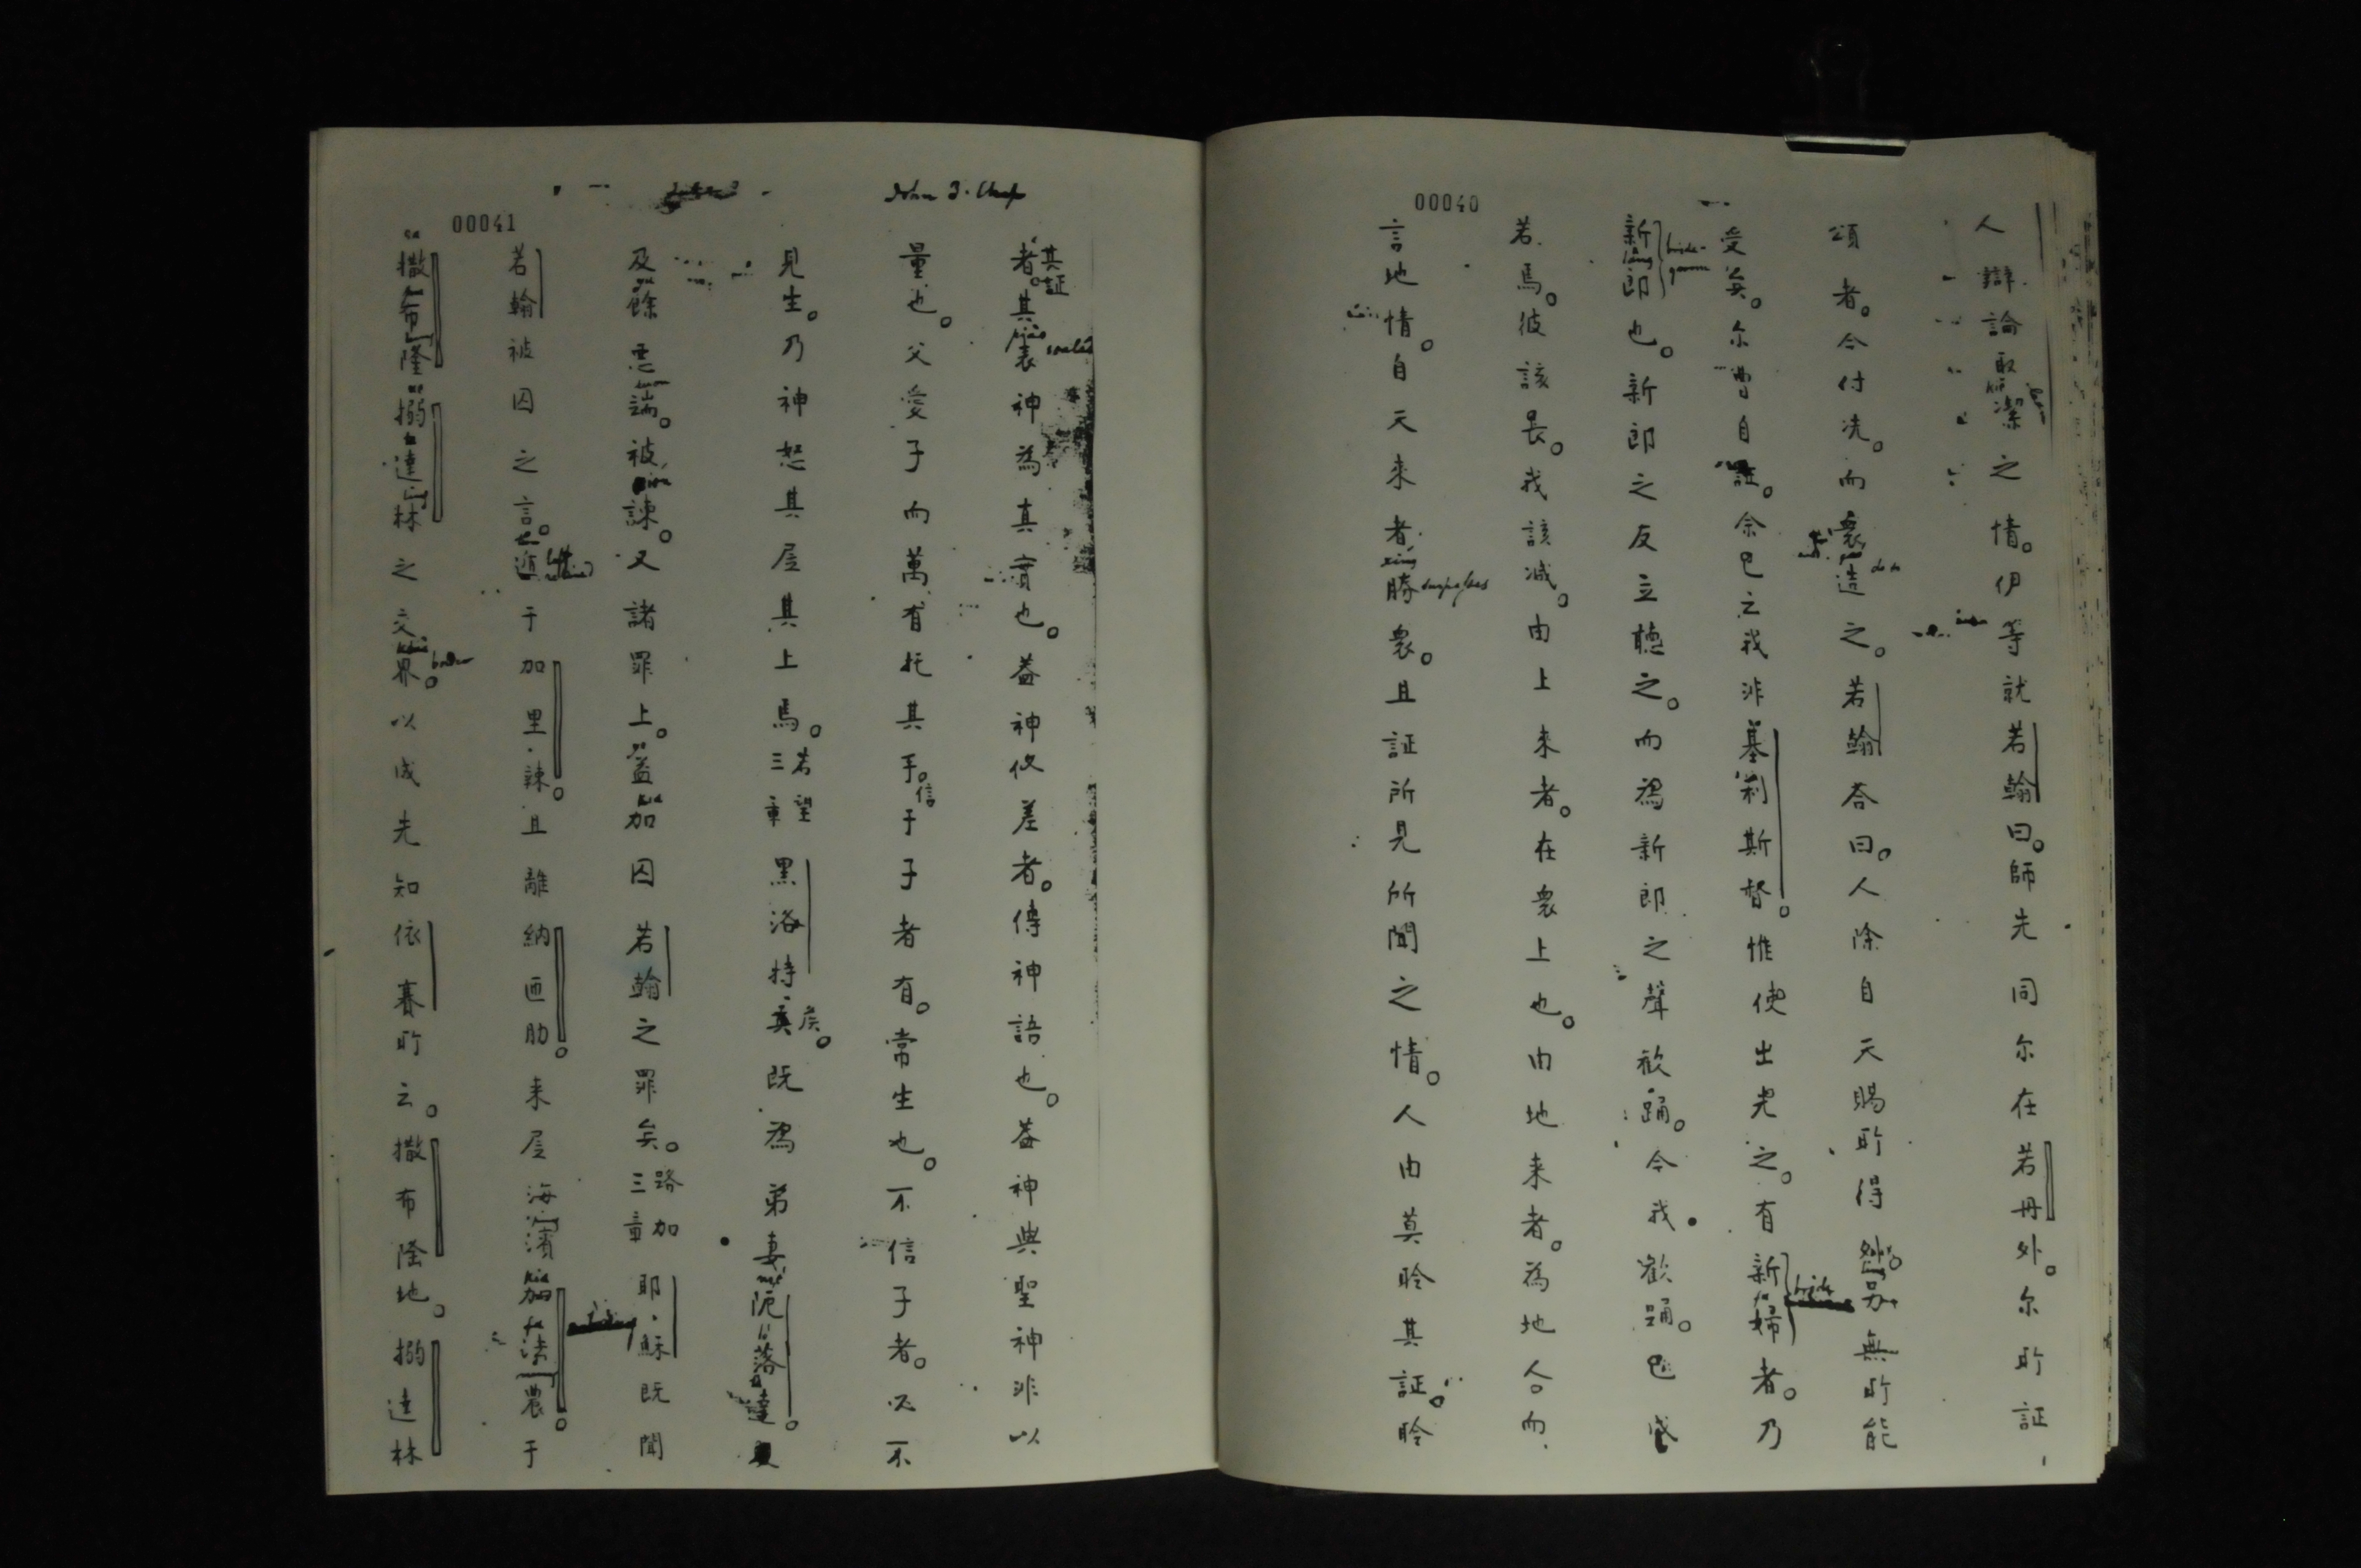 00040
人辯論取潔之情。伊等就若翰曰。師先同尔在若丹外。尔所証
頌者。今付洗。而衆造之。若翰答曰。人除自天賜所得外。另無所能
受矣。尔曹自証。余已云我非基利斯督。惟使出先之。有新婦者。乃
bride
新郎也。新郎之友立聽之。而為新郎之聲歡踊。今我歡踊。已成
bride-
groom
若焉。彼該長。我該減。由上来者。在衆上也。由地来者。為地人。而
言地情。自天来者勝衆。且証所見所聞之情。人由莫聆其証。聆
surpasses
John 3. Chap
00041
其証
者。其表神為真實也。蓋神攸差者。傳神語也。蓋神與聖神非以
量也。父愛子而萬有托其手。信于子者有常生也。不信子者。必不
見生。乃神怒其居其上焉。若望三章 黑洛特矣。既為弟妻阨落達
及餘悪端。被諫。又諸罪上。蓋加囚若翰之罪矣。路加三章 耶穌既聞
若翰被囚之言。退于加里辣。且離納匝肋。来居海濱加法農于
撒布隆搦達林之交界。以成先知依賽所云。撒布隆地。搦達林
border